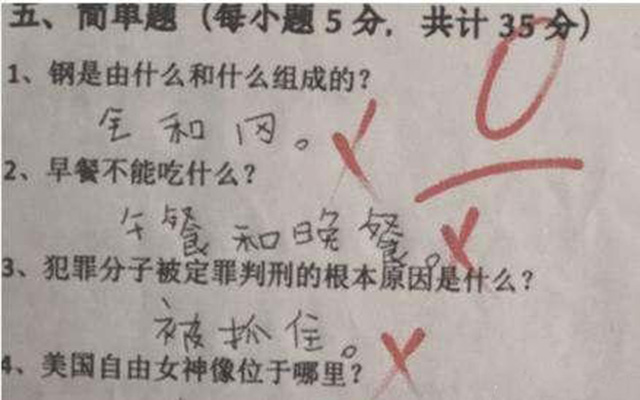 五、简单题（每小题5分，共计35分）
0
1、钢是由什么和什么组成的？
钅和冈。
2、早餐不能吃什么？
午餐和晚餐。
3、犯罪分子被定罪判刑的根本原因是什么？
被抓住。
4、美国自由女神像位于哪里？